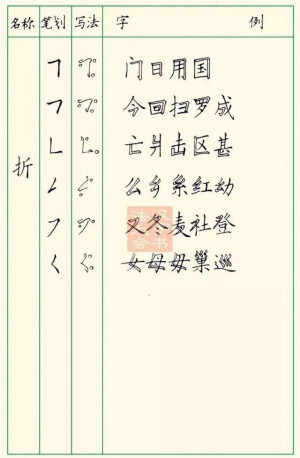 名称 笔划 写法 字 例
折
㇕ 门日用国
㇇ 今回扫罗成
㇄ 亡屰击区甚
㇜ 么乡系红幼
㇇ 又冬麦社登
㇛ 女母毋巢巡